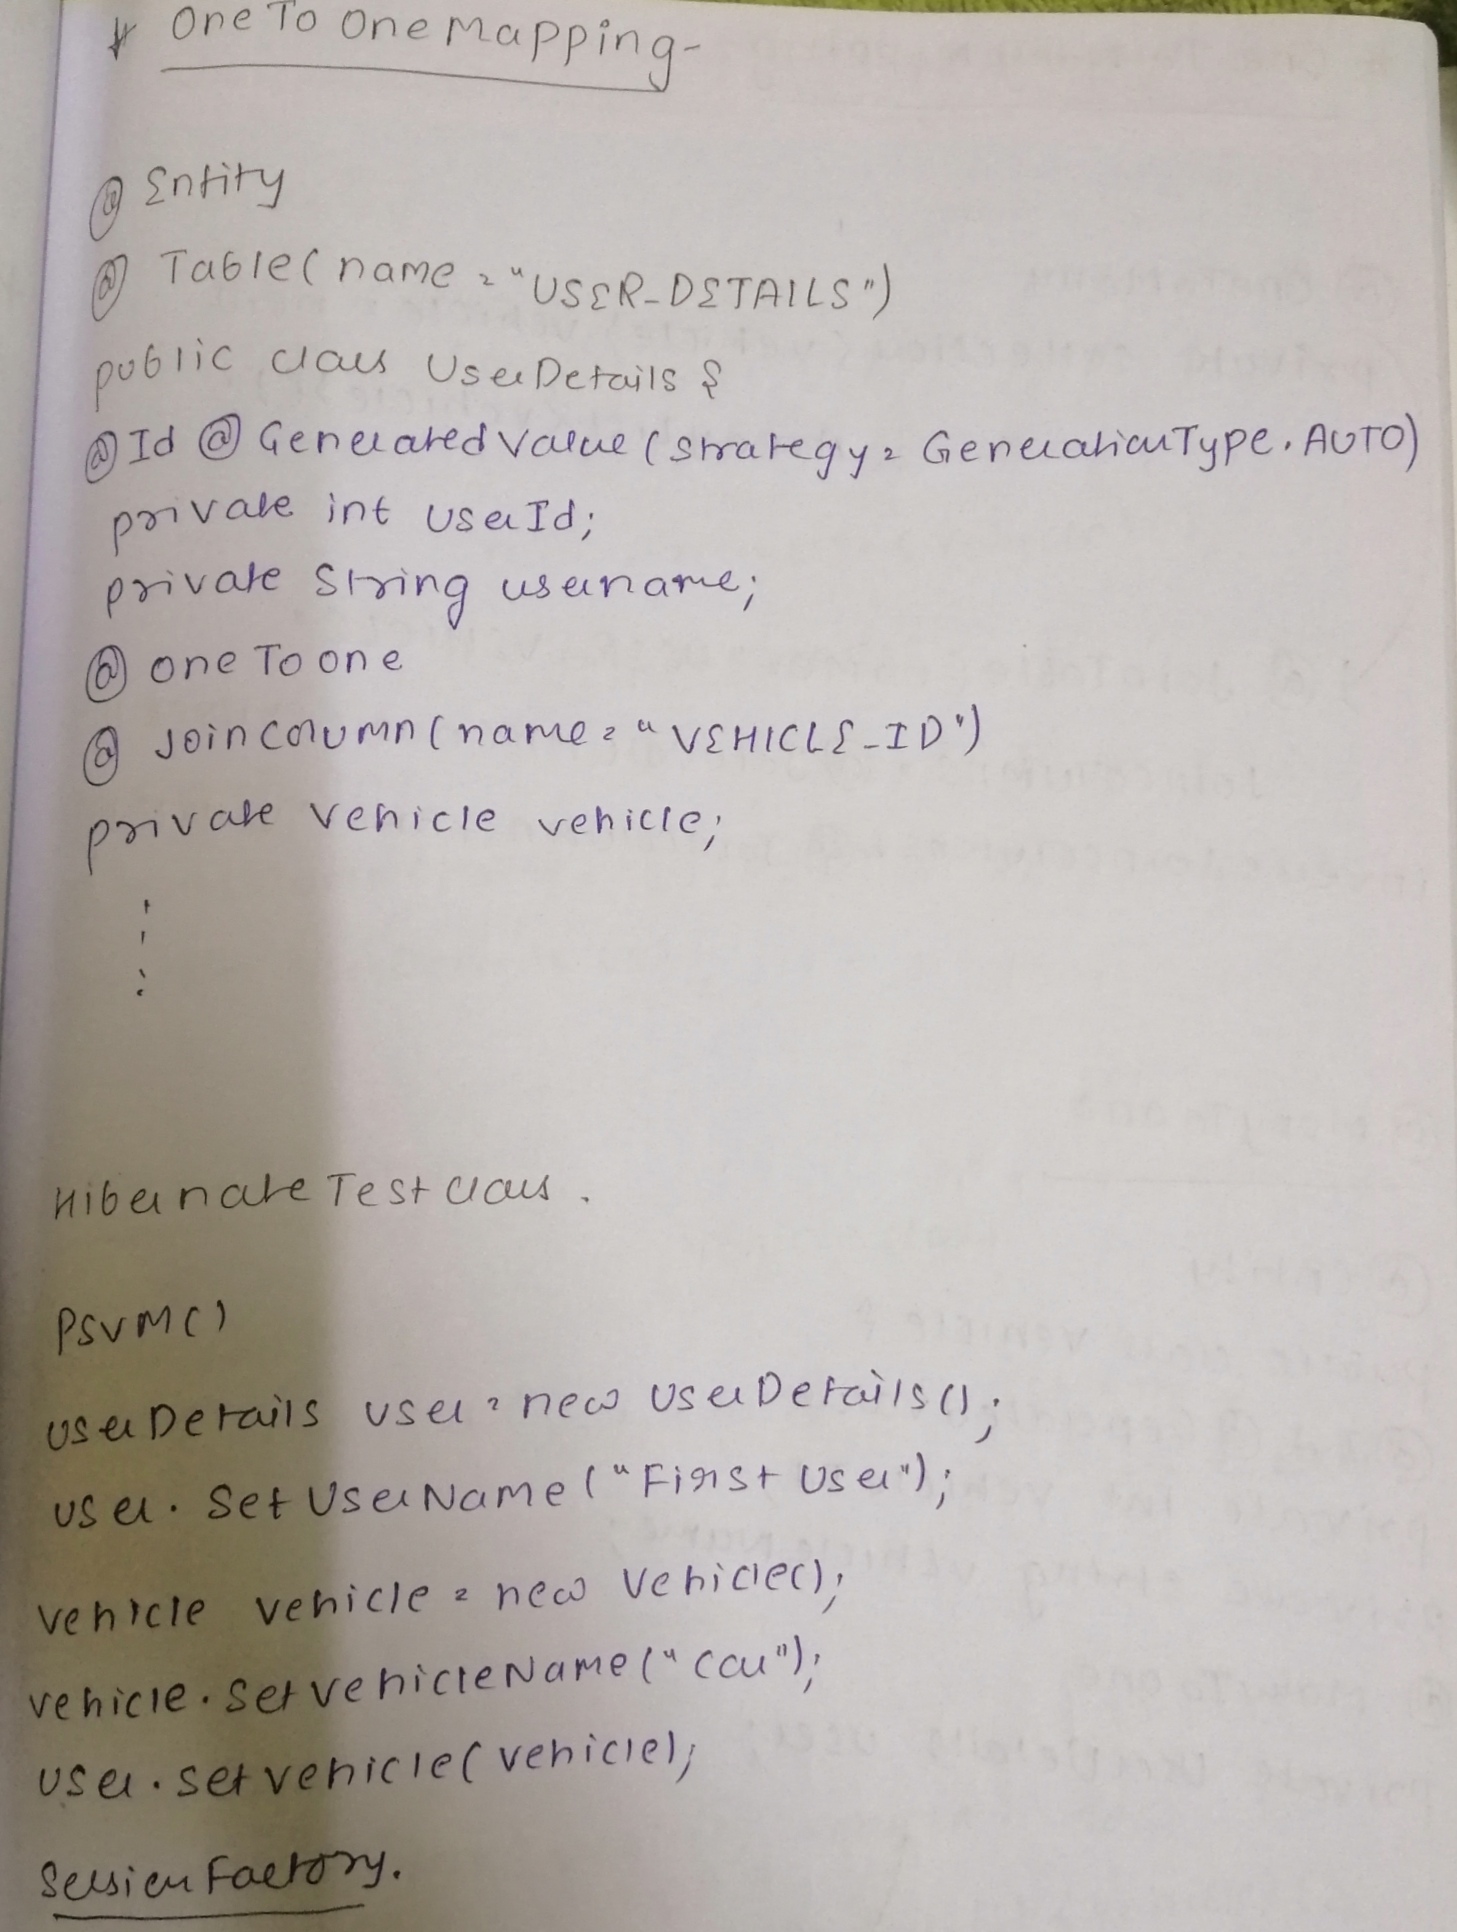 * One To One Mapping-
@ Entity
@ Table(name = "USER_DETAILS")
public class UserDetails {
@Id @ GeneratedValue (strategy = GenerationType.AUTO)
private int userId;
private String username;
@ one To one
@ Join column (name = "VEHICLE_ID")
private vehicle vehicle;
Hibernate Test class.
PSVM()
userDetails user = new userDetails();
user. Set UserName ("First User");
vehicle vehicle = new Vehicle();
vehicle. Set vehicleName ("Car");
user. set vehicle (vehicle);
Session Factory.